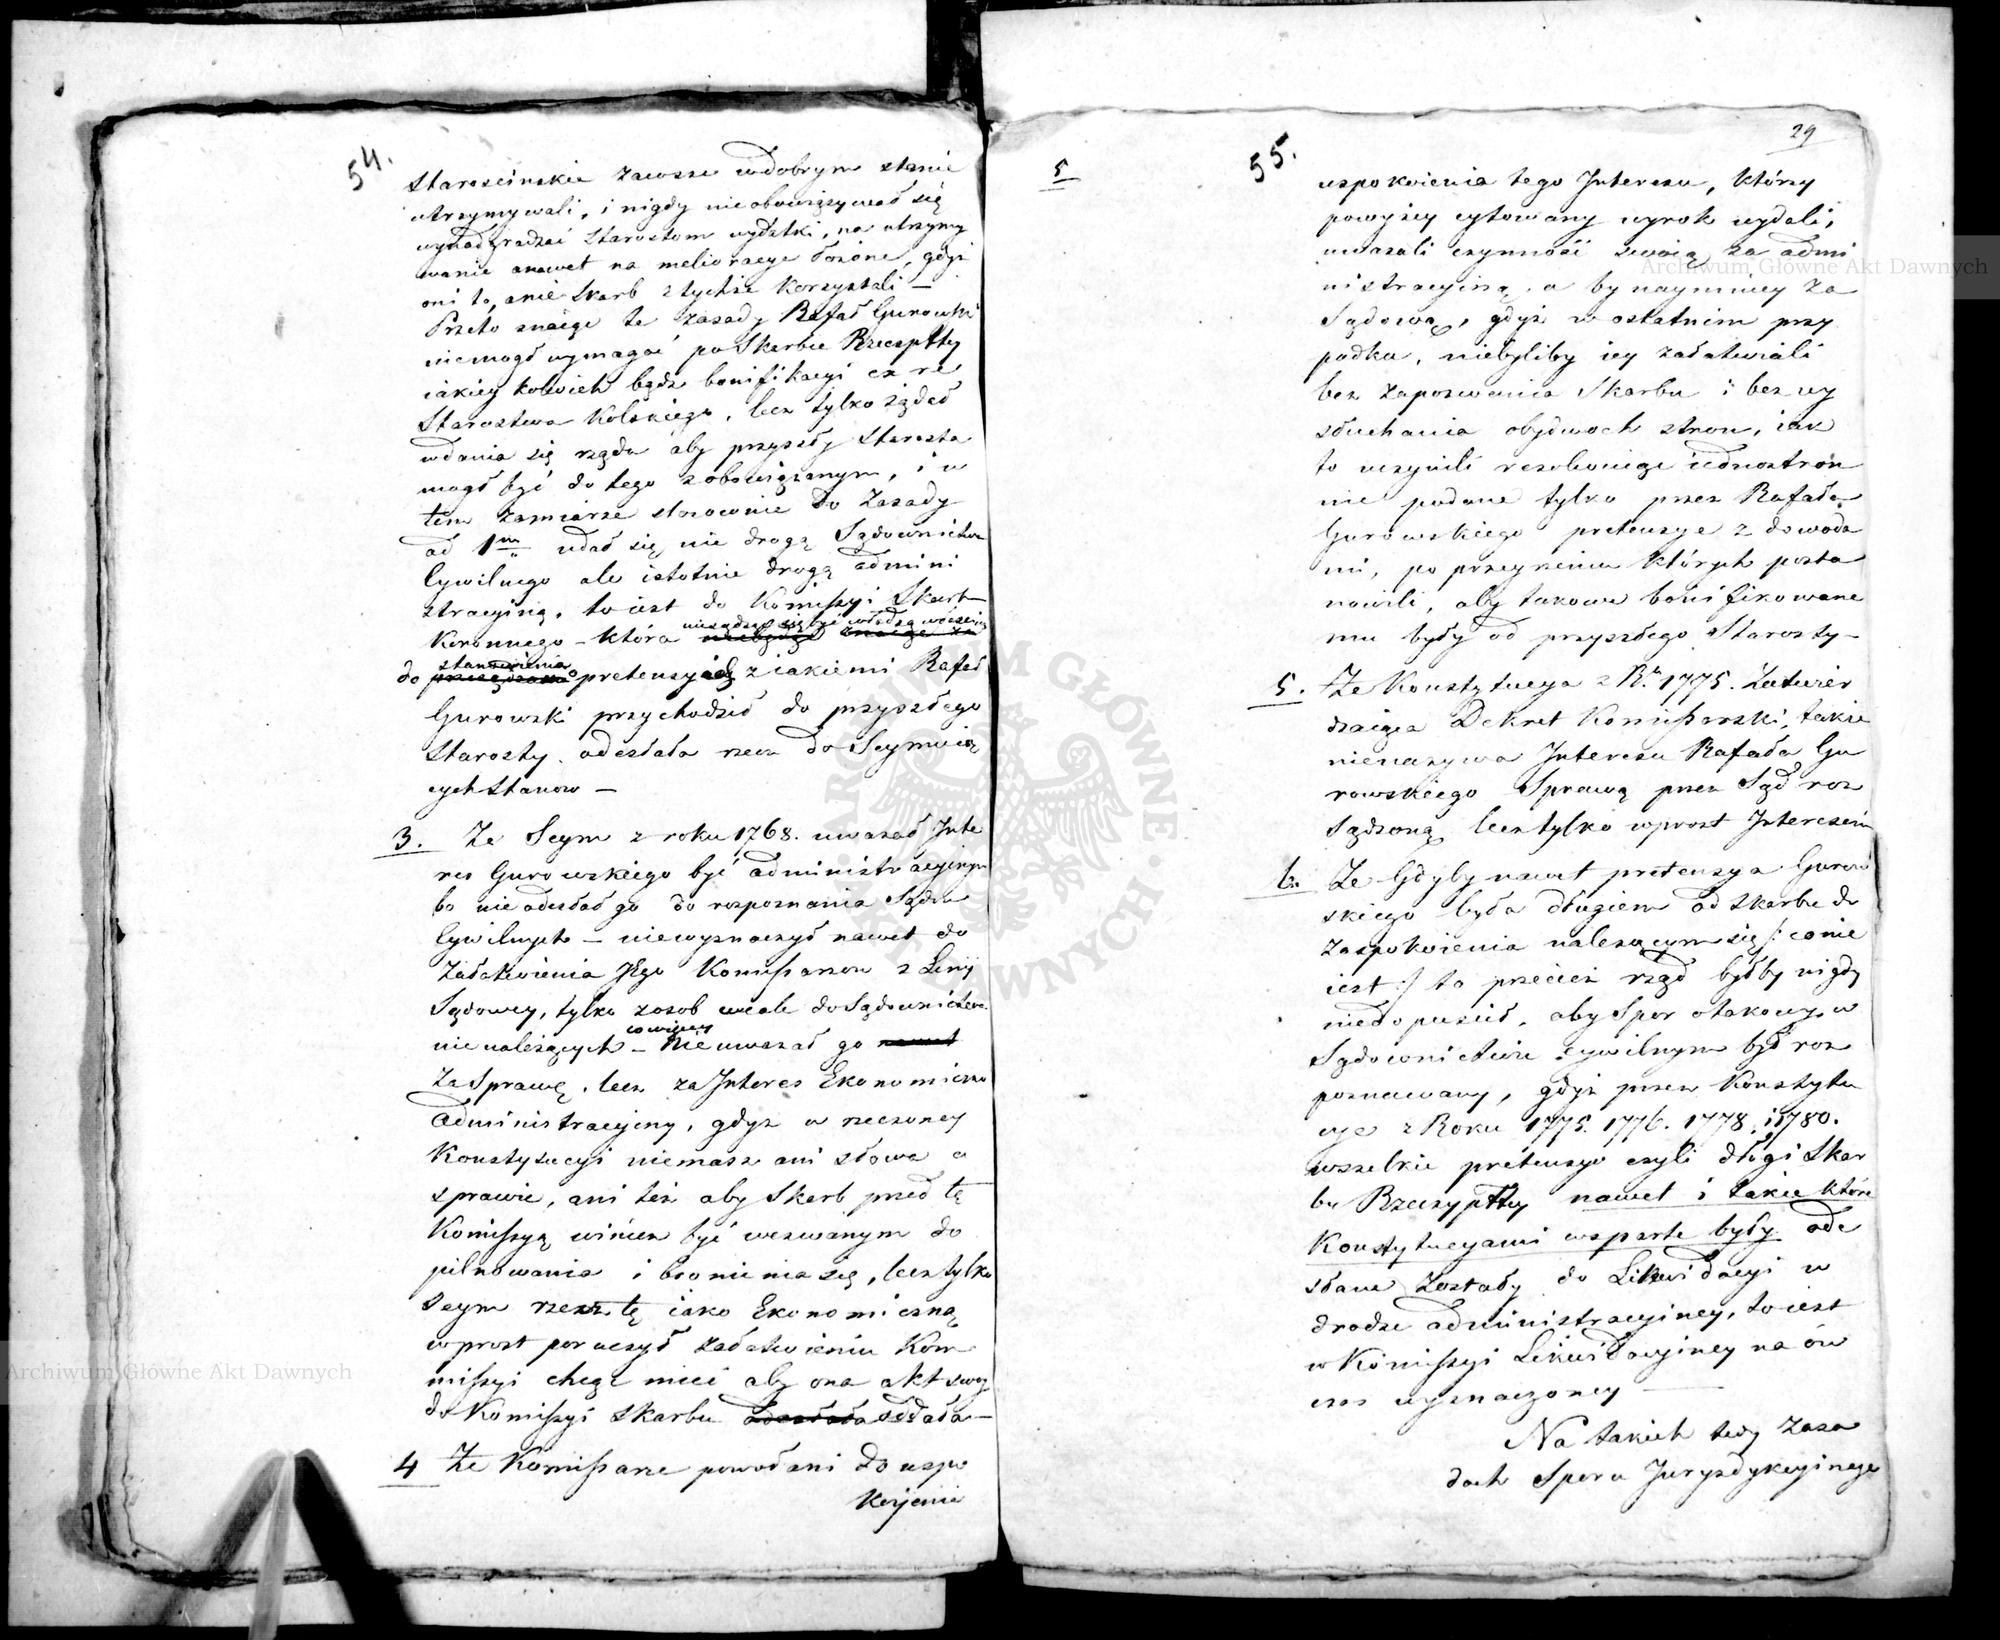 54.
Starościńskie zawsze w dobrym stanie
utrzymywali, i nigdy nie obowiązywał się
wynadgradzać Starostom wydatki, na utrzymy
wanie a nawet na melioracye łożone, gdyż
oni to, a nie Skarb z tychże korzystali —
Przeto znaiąc te zasady Rafał Gurowski
niemogł wymagać po Skarbie Rzeczpltty
iakiey kolwiek bądz bonifikacyi ex re
Starostwa Kolskiego, lecz tylko żądał
wdania się rządu aby przyszły Starosta
mogł być do tego zobowiązanym, i w
tem zamiarze stosownie do Zasady
ad 1m udał się nie drogą Sądownictwa
Cywilnego ale istotnie drogą admini
stracyiną, to iest do Kommissyi Skarb
Koronnego – która nie sądząc się być władzą właściwą
do stanowienia o pretensyach z iakiemi Rafał
Gurowski przychodził do przyszłego
Starosty, odesłała rzecz do Seymuią
cych Stanow —
3. Że Seym z roku 1768. uważał Inte
res Gurowskiego być administracyinym
bo nie odesłał go do rozpoznania Sądow
Cywilnych – niewyznaczył nawet do
załatwienia Jego Komissarzow z Linii
Sądowey, tylko z osob wcale do Sądownictwa
nie należących – co więcey Nie uważał go nawet
za Sprawę, lecz za Interes Ekonomiczno
administracyiny, gdyż w rzeczoney
Konstytucyi niemasz ani słowa o
sprawie, ani też aby Skarb przed tą
Komissyą winien być wezwanym do
pilnowania i bronienia się, lecz tylko
Seym rzecz tę iako Ekonomiczną
wprost poruczył załatwieniu Kom
missyi chcąc mieć aby ona akt swoy
do Komissyi Skarbu odesłała oddała —
4 Że Komissarze powołani do uspo
kojenia
29
5
55.
uspokoienia tego Interesu, którzy
powyżey cytowany wyrok wydali,
uważali czynność swoią za admi
nistracyiną, a by naymniey za
Sądową, gdyż w ostatnim przy
padku, niebyliby iey załatwiali
bez zapozwania Skarbu i bez wy
słuchania obydwoch stron, iak
to uczynili rezolwuiąc iednostron
nie podane tylko przez Rafała
Gurowskiego pretensye z dowoda
mi, po przeyrzeniu których posta
nowili, aby takowe bonifikowane
mu były od przyszłego Starosty —
5. Że Konstytucya z Rku 1775. Zatwier
dzaiąca Dekret Komissarski, także
nienazywa Interesu Rafała Gu
rowskiego Sprawą przez Sąd roz
sądzoną lecz tylko wprost Interesem
6. Że Gdyby nawet pretensya Gurow
skiego była długiem od Skarbu do
zaspokoienia należącym się /: co nie
iest :/ to przecież rząd byłby nigdy
niedopuścił, aby Spor o takowy w
Sądownictwie cywilnym był roz
poznawany, gdyż przez Konstytu
cye z Roku 1775. 1776. 1778. i 1780.
wszelkie pretensye czyli długi Skar
bu Rzeczypltty nawet i takie które
Konstytucyami wsparte były ode
słane zostały do Likwidacyi w
drodze administracyiney, to iest
w Komissyi Likwidacyiney na ów
czas wyznaczoney —
Na takich tedy zasa
dach Sporu Jurysdykcyinego
Archiwum Główne Akt Dawnych
Archiwum Główne Akt Dawnych
ARCHIWUM GŁÓWNE AKT DAWNYCH